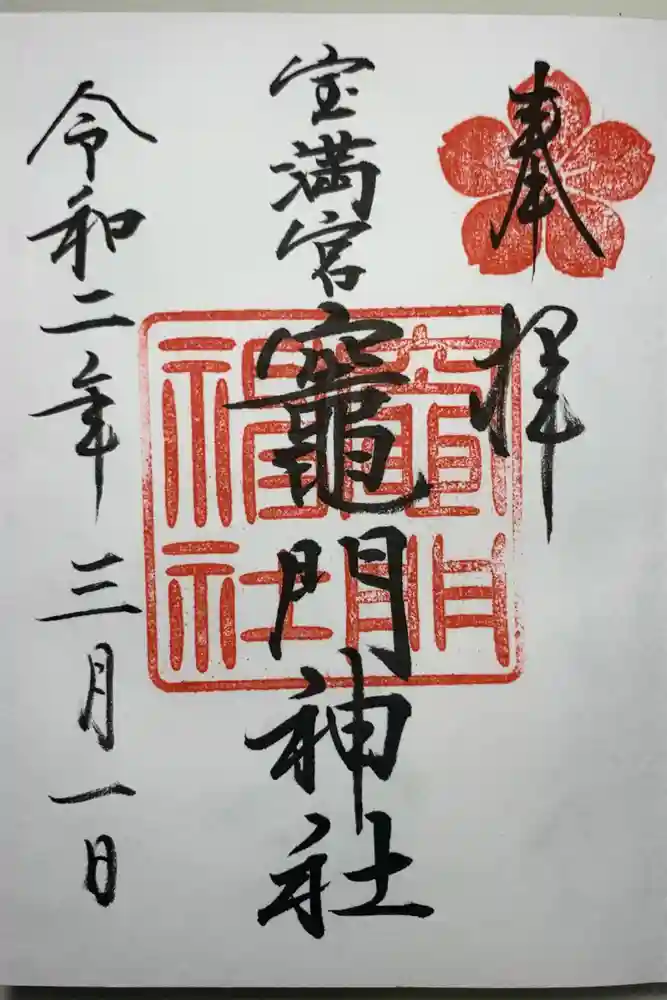 奉拝
宝満宮竈門神社
竈門神社
令和二年三月一日